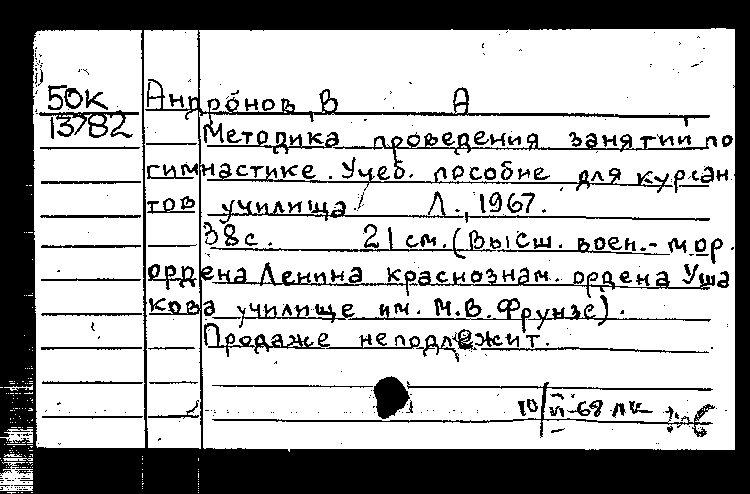 50к Андронов, В А
13782 Методика проведения занятий по
гимнастике. Учеб. пособие для курсан-
тов училища Л., 1967.
38с. 21 см. (Высш. воен.-мор.
ордена Ленина краснознам. ордена Уша
кова училище им. М.В. Фрунзе).
Продаже неподлежит.
10/II-68 лк